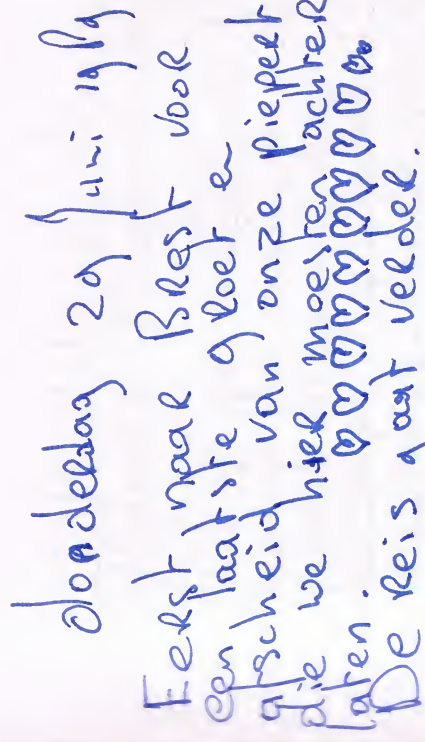 donderdag 29 Juni 1989
Eerst naar Brest voor
een laatste groet en
afscheid van onze Piepert
die we hier moesten achter
laten. ♡♡♡♡♡♡♡♡♡♡
De Reis gaat verder.